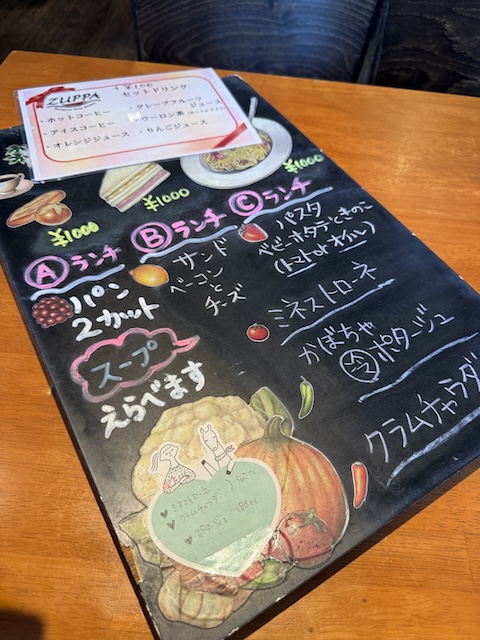 ZUPPA
+¥100
セットドリンク
・ホットコーヒー
・アイスコーヒー
・オレンジジュース
・グレープフルーツ
ジュース
・ウーロン茶
・りんごジュース
¥1000
¥1000
¥1000
Ⓐランチ
パン
2カット
Ⓑランチ
サンド
ベーコンと
チーズ
Ⓒランチ
パスタ
ベビーホタテときのこ
(トマト or オイル)
スープ
えらべます
ミネストローネ
かぼちゃ
冷 ポタージュ
クラムチャウダー
ミネストローネ
クラムチャウダー
160cc
ポタージュ 180cc